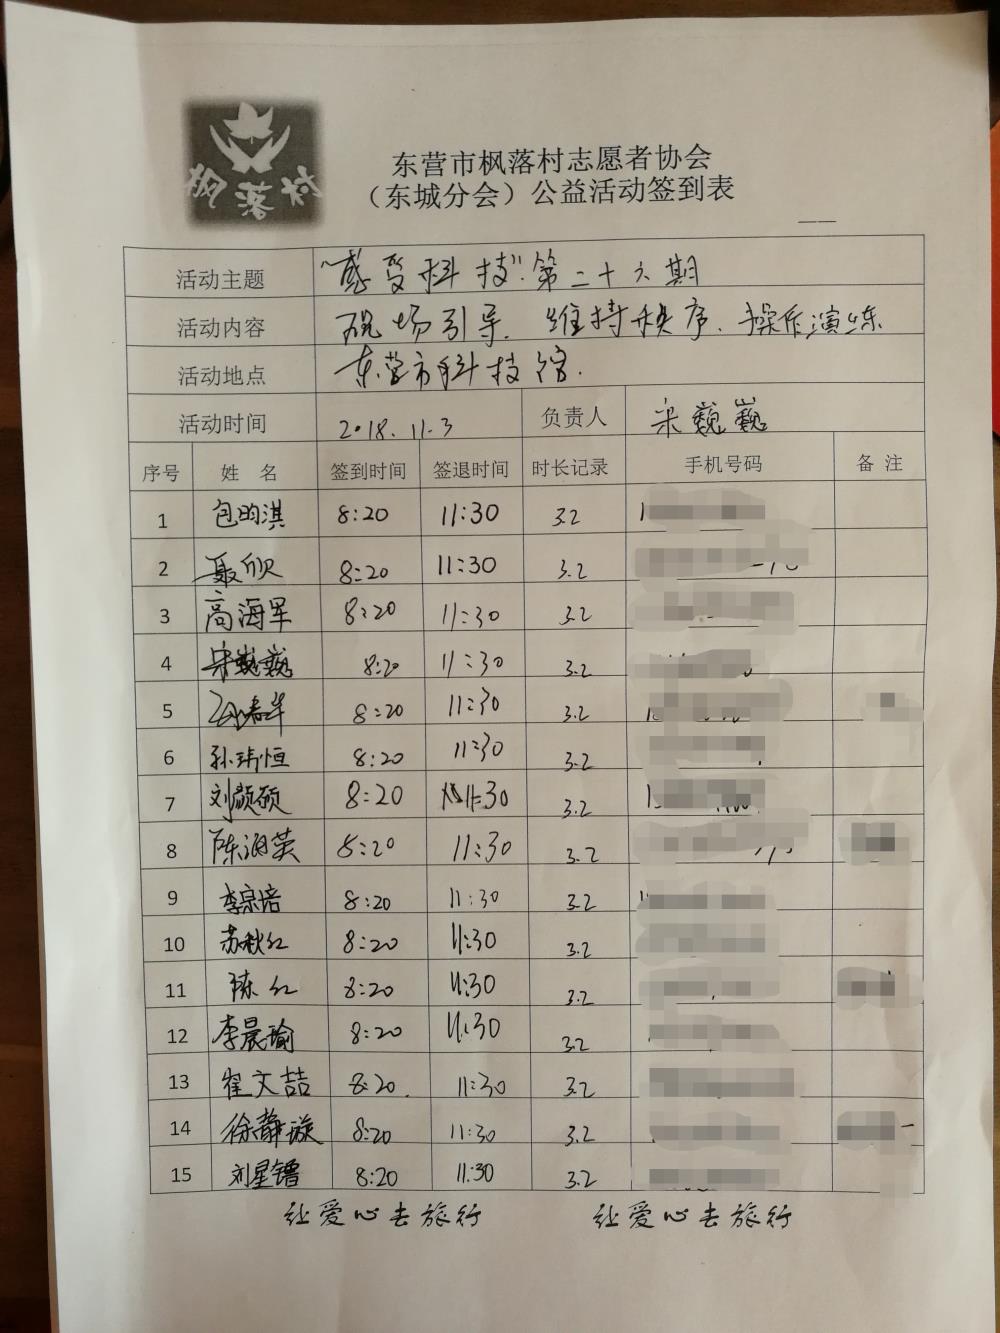 枫落村
东营市枫落村志愿者协会
（东城分会）公益活动签到表
活动主题 "感受科技"第二十六期
活动内容 现场引导、维持秩序、操作演练
活动地点 东营市科技馆.
活动时间 2018.11.3 负责人 宋巍巍
序号 姓 名 签到时间 签退时间 时长记录 手机号码 备 注
1 包昀淇 8:20 11:30 3.2 1
2 聂欣 8:20 11:30 3.2
3 高海军 8:20 11:30 3.2
4 宋巍巍 8:20 11:30 3.2
5 8:20 11:30 3.2
6 孙玮恒 8:20 11:30 3.2
7 刘颜硕 8:20 11:30 3.2 1
8 陈 英 8:20 11:30 3.2
9 李宗培 8:20 11:30 3.2
10 苏秋红 8:20 11:30 3.2
11 陈红 8:20 11:30 3.2
12 李晨瑜 8:20 11:30 3.2
13 崔文喆 8:20. 11:30 3.2
14 徐静漩 8:20 11:30 3.2
15 刘星镥 8:20 11:30 3.2
让爱心去旅行 让爱心去旅行